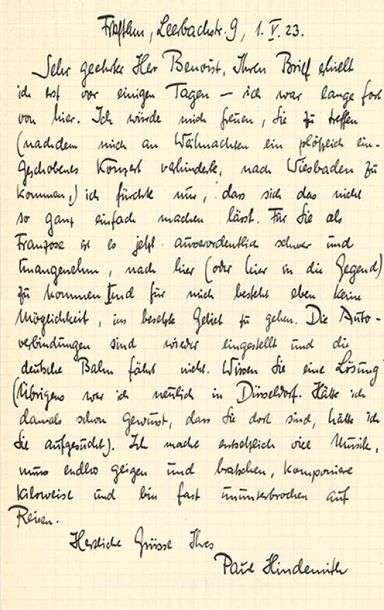 Frkftm, Leerbachstr. 9, 1. V. 23.
Sehr geehrter Herr Benoist, Ihren Brief erhielt
ich erst vor einigen Tagen – ich war lange fort
von hier. Ich würde mich freuen, Sie zu treffen
(nachdem mich an Weihnachten ein plötzlich ein-
geschobenes Konzert verhinderte, nach Wiesbaden zu
kommen,) ich fürchte nur, dass sich das nicht
so ganz einfach machen lässt. Für Sie als
Franzose ist es jetzt ausserordentlich schwer und
unangenehm, nach hier (oder hier in die Gegend)
zu kommen und für mich besteht eben keine
Möglichkeit, ins besetzte Gebiet zu gehen. Die Auto-
verbindungen sind wieder eingestellt und die
deutsche Bahn fährt nicht. Wissen Sie eine Lösung?
(Übrigens war ich neulich in Düsseldorf. Hätte ich
damals schon gewusst, dass Sie dort sind, hätte ich
Sie aufgesucht). Ich mache entsetzlich viel Musik,
muss endlos geigen und bratschen, komponiere
kiloweise und bin fast ununterbrochen auf
Reisen.
Herzliche Grüsse Ihres
Paul Hindemith